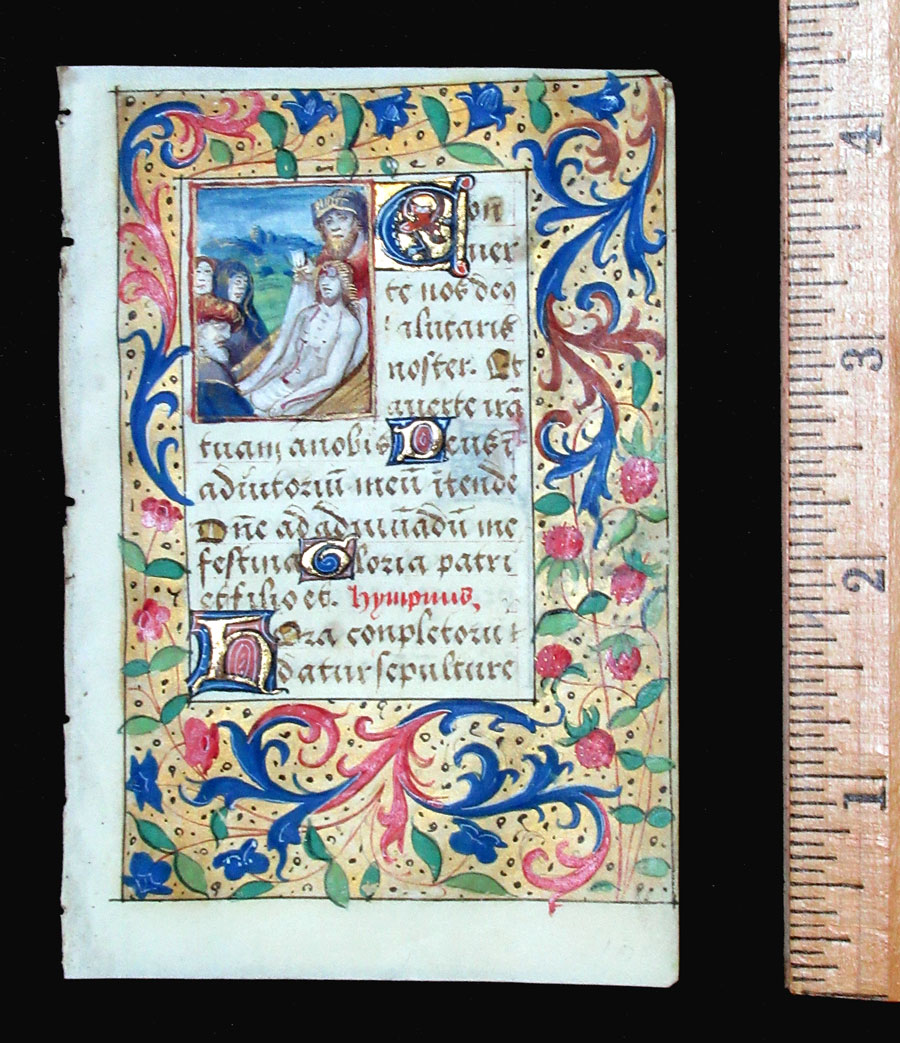 Con
uer
te nos deꝯ
salutaris
noster. Et
auerte irã
tuam anobis Deus ĩ
adiutoriũ meũ ĩtende
Dñe ad adiuuãdũ me
festina Gloria patri
et filio et. hympnus,
Hora conpletoru
datur sepulture
4
3
2
1